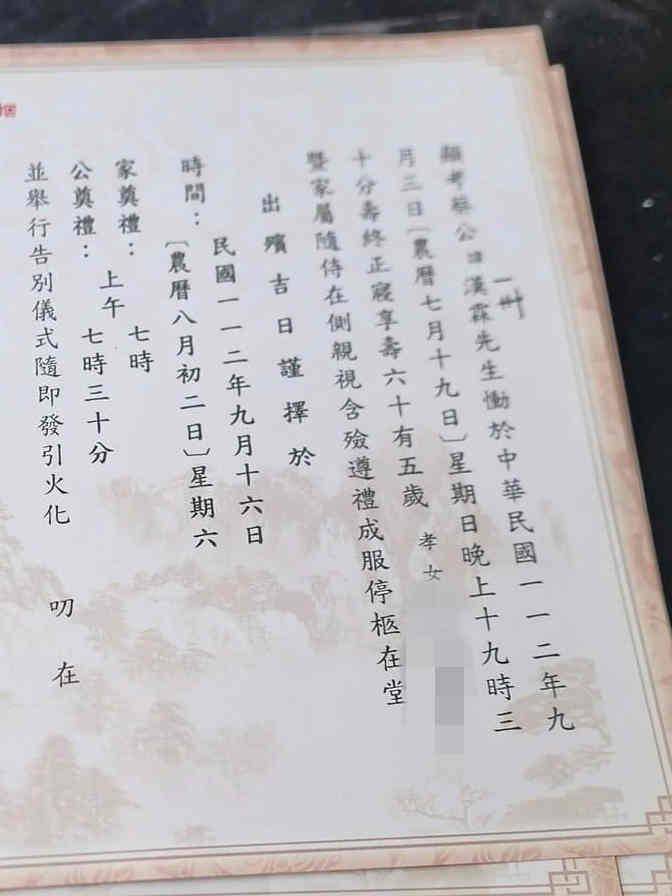 顯考蔡公諱漢霖先生慟於中華民國一一二年九
月三日〔農曆七月十九日〕星期日晚上十九時三
十分壽終正寢享壽六十有五歲
孝女
暨家屬隨侍在側親視含殮遵禮成服停柩在堂
出殯吉日謹擇於
民國一一二年九月十六日
時間：
〔農曆八月初二日〕星期六
家奠禮：
上午七時
公奠禮：
七時三十分
並舉行告別儀式隨即發引火化 叨在